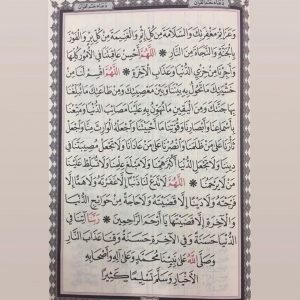 وَعَزَائِمَ مَغْفِرَتِكَ وَالسَّلَامَةَ مِنْ كُلِّ إِثْمٍ وَالْغَنِيمَةَ مِنْ كُلِّ بِرٍّ وَالْفَوْزَ
بِالْجَنَّةِ وَالنَّجَاةَ مِنَ النَّارِ ۞ اللَّهُمَّ أَحْسِنْ عَاقِبَتَنَا فِي الْأُمُورِ كُلِّهَا
وَأَجِرْنَا مِنْ خِزْيِ الدُّنْيَا وَعَذَابِ الْآخِرَةِ ۞ اللَّهُمَّ اقْسِمْ لَنَا مِنْ
خَشْيَتِكَ مَا تَحُولُ بِهِ بَيْنَنَا وَبَيْنَ مَعْصِيَتِكَ وَمِنْ طَاعَتِكَ مَا تُبَلِّغُنَا
بِهَا جَنَّتَكَ وَمِنَ الْيَقِينِ مَا تُهَوِّنُ بِهِ عَلَيْنَا مَصَائِبَ الدُّنْيَا وَمَتِّعْنَا
بِأَسْمَاعِنَا وَأَبْصَارِنَا وَقُوَّتِنَا مَا أَحْيَيْتَنَا وَاجْعَلْهُ الْوَارِثَ مِنَّا وَاجْعَلْ
ثَأْرَنَا عَلَى مَنْ ظَلَمَنَا وَانْصُرْنَا عَلَى مَنْ عَادَانَا وَلَا تَجْعَلْ مُصِيبَتَنَا فِي
دِينِنَا وَلَا تَجْعَلِ الدُّنْيَا أَكْبَرَ هَمِّنَا وَلَا مَبْلَغَ عِلْمِنَا وَلَا تُسَلِّطْ عَلَيْنَا
مَنْ لَا يَرْحَمُنَا ۞ اللَّهُمَّ لَا تَدَعْ لَنَا ذَنْبًا إِلَّا غَفَرْتَهُ وَلَا هَمًّا إِلَّا
فَرَّجْتَهُ وَلَا دَيْنًا إِلَّا قَضَيْتَهُ وَلَا حَاجَةً مِنْ حَوَائِجِ الدُّنْيَا
وَالْآخِرَةِ إِلَّا قَضَيْتَهَا يَا أَرْحَمَ الرَّاحِمِينَ ۞ رَبَّنَا آتِنَا فِي
الدُّنْيَا حَسَنَةً وَفِي الْآخِرَةِ حَسَنَةً وَقِنَا عَذَابَ النَّارِ
وَصَلَّى اللَّهُ عَلَى نَبِيِّنَا مُحَمَّدٍ وَعَلَى آلِهِ وَأَصْحَابِهِ
الْأَخْيَارِ وَسَلَّمَ تَسْلِيمًا كَثِيرًا